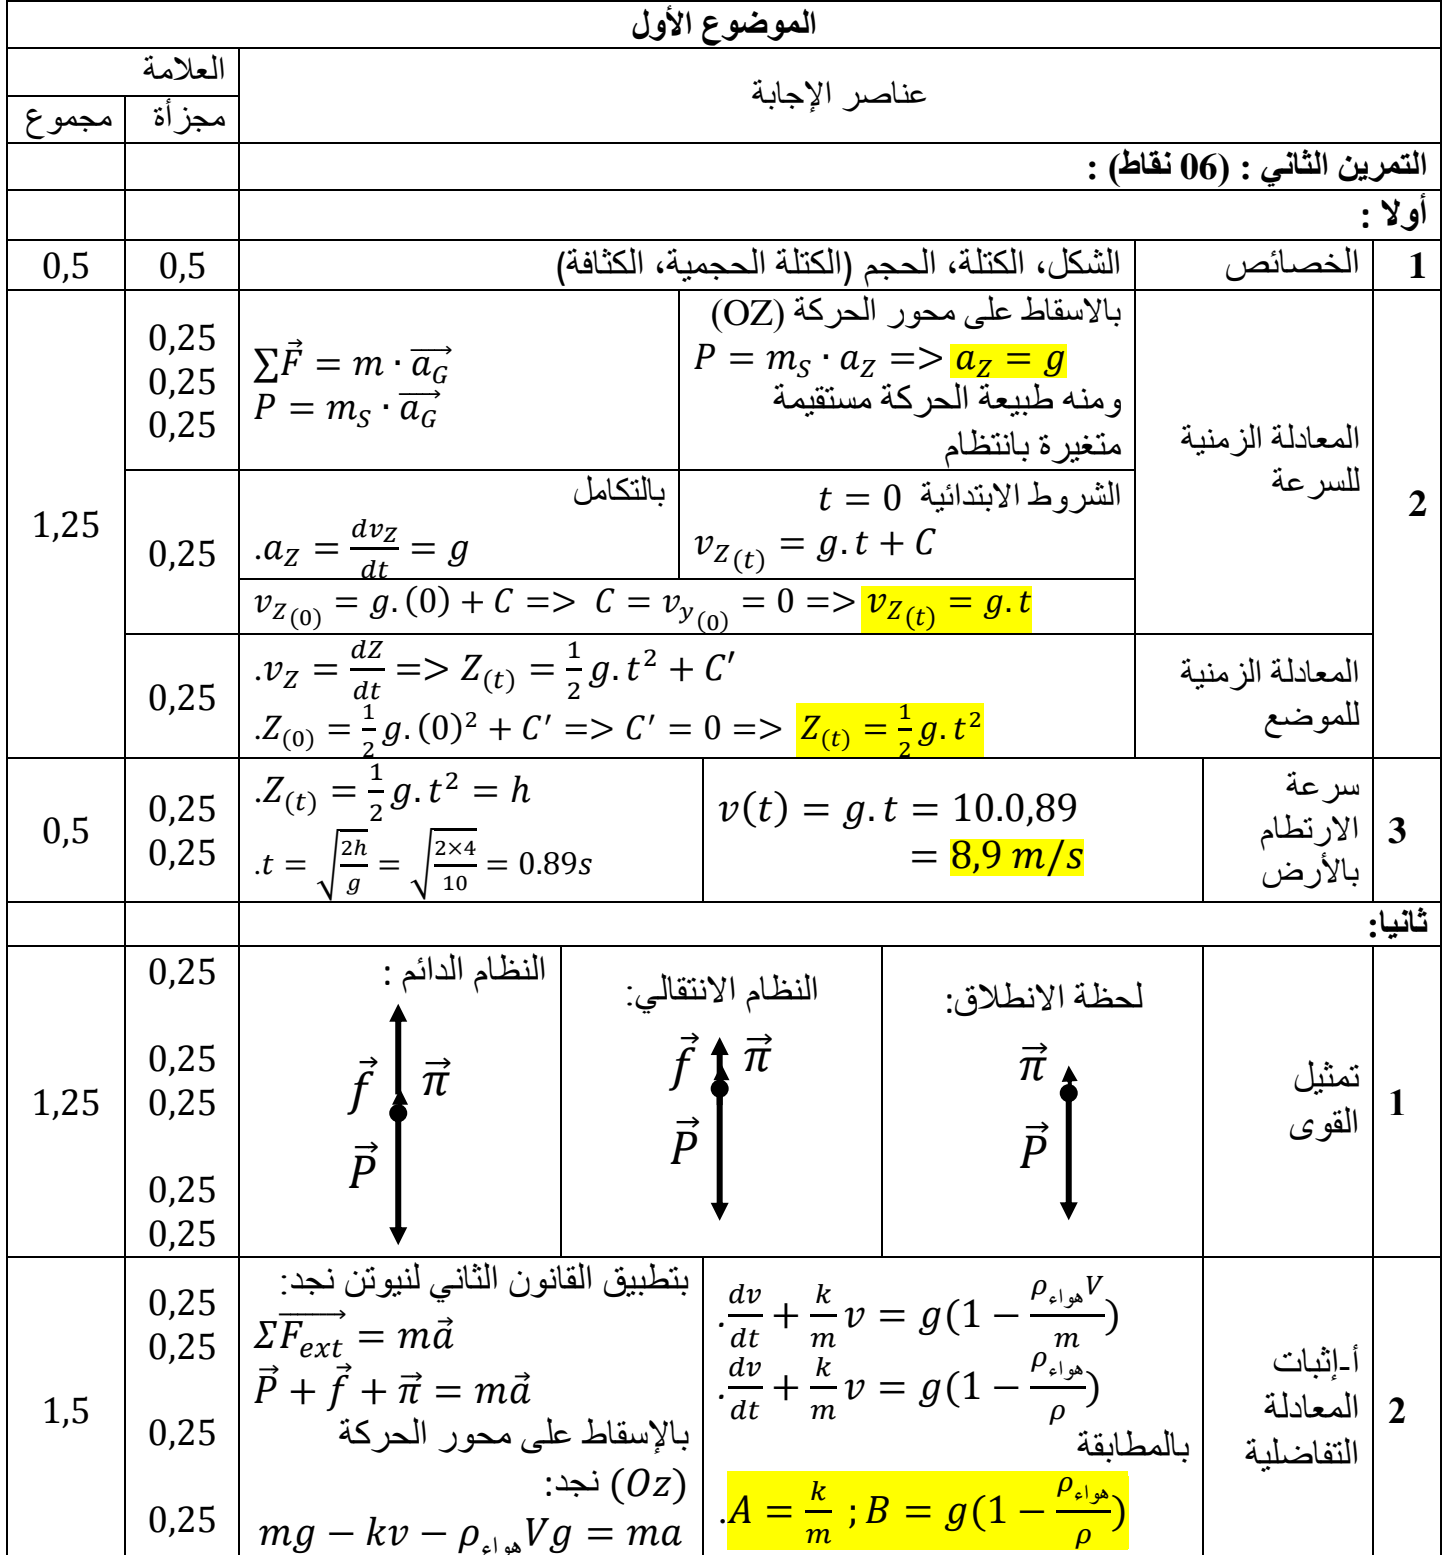 الموضوع الأول
العلامة
عناصر الإجابة
مجزأة
مجموع
التمرين الثاني : (06 نقاط) :
أولا :
1
الخصائص
الشكل، الكتلة، الحجم (الكتلة الحجمية، الكثافة)
0,5
0,5
2
المعادلة الزمنية
للسرعة
بالاسقاط على محور الحركة (OZ)
P = m_S · a_Z => a_Z = g
ومنه طبيعة الحركة مستقيمة
متغيرة بانتظام
∑F⃗ = m · a_G⃗
P = m_S · a_G⃗
0,25
0,25
0,25
1,25
الشروط الابتدائية t = 0
v_Z(t) = g. t + C
بالتكامل
.a_Z = dv_Z/dt = g
0,25
v_Z(0) = g. (0) + C => C = v_y(0) = 0 => v_Z(t) = g. t
المعادلة الزمنية
للموضع
.v_Z = dZ/dt => Z(t) = 1/2 g. t² + C′
.Z(0) = 1/2 g. (0)² + C′ => C′ = 0 => Z(t) = 1/2 g. t²
0,25
3
سرعة
الارتطام
بالأرض
v(t) = g. t = 10.0,89
= 8,9 m/s
.Z(t) = 1/2 g. t² = h
.t = √(2h/g) = √(2×4/10) = 0.89s
0,25
0,25
0,5
ثانيا:
1
تمثيل
القوى
لحظة الانطلاق:
π⃗
P⃗
النظام الانتقالي:
f⃗ π⃗
P⃗
النظام الدائم :
f⃗ π⃗
P⃗
0,25
0,25
0,25
0,25
0,25
1,25
2
أ-إثبات
المعادلة
التفاضلية
.dv/dt + k/m v = g(1 − ρهواء V/m)
.dv/dt + k/m v = g(1 − ρهواء/ρ)
بالمطابقة
.A = k/m ; B = g(1 − ρهواء/ρ)
بتطبيق القانون الثاني لنيوتن نجد:
ΣF_ext⃗ = ma⃗
P⃗ + f⃗ + π⃗ = ma⃗
بالإسقاط على محور الحركة
(Oz) نجد:
mg − kv − ρهواء Vg = ma
0,25
0,25
0,25
0,25
1,5